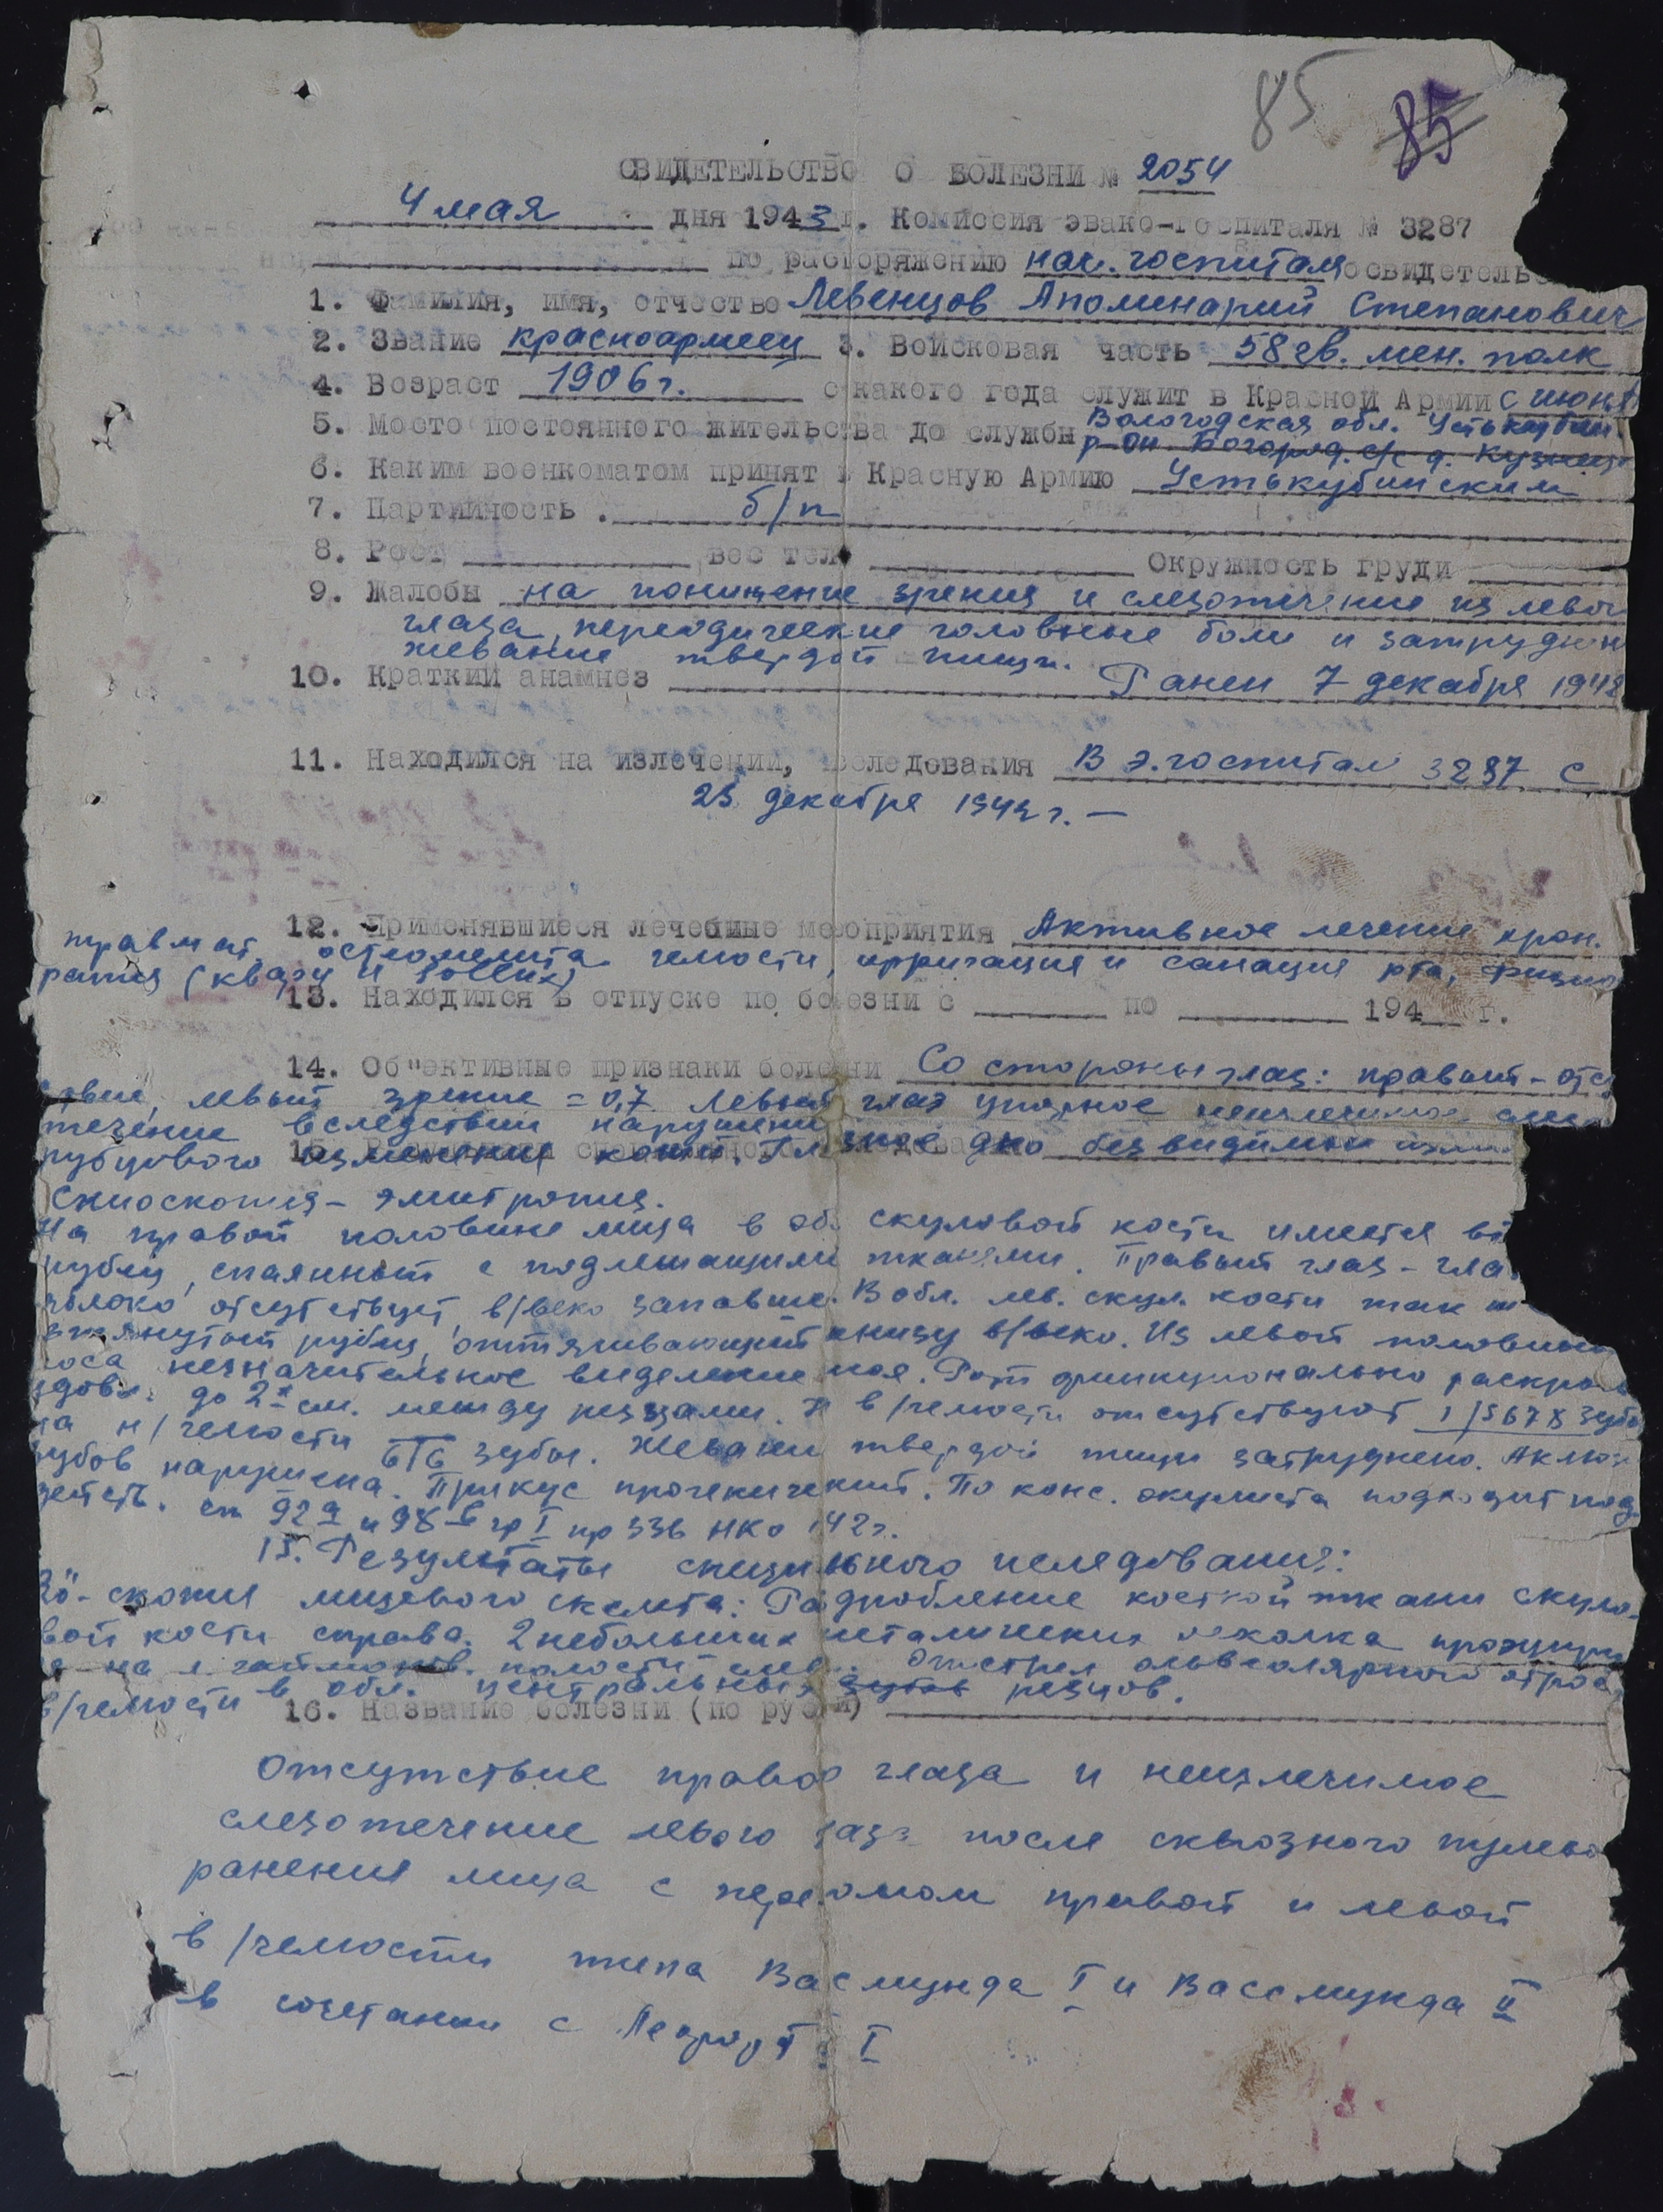 85 85
СВИДЕТЕЛЬСТВО О БОЛЕЗНИ № 2054
4 мая дня 1943 г. Комиссия эвако-госпиталя № 3287
по распоряжению нач. госпиталя освидетельс
1. Фамилия, имя, отчество Левенцов Аполинарий Степанович
2. Звание красноармеец 3. Войсковая часть 58 гв. мен. полк
4. Возраст 1906 г. с какого года служит в Красной Армии с июня
5. Место постоянного жительства до службы Вологодская обл. Устькубин.
р-он Богород. с/с д. Кузнец
6. Каким военкоматом принят в Красную Армию Устькубинским
7. Партийность . б/п
8. Рост вес тел Окружность груди
9. Жалобы на понижение зрения и слезотечение из левого
глаза, периодические головные боли и затруднен
жевание твердой пищи.
10. Краткий анамнез Ранен 7 декабря 1942
11. Находился на излечении, исследования В э.госпитал 3287 с
25 декабря 1942 г. —
12. Применявшиеся лечебные мероприятия Активное лечение хрон.
травмат. остеомелита челюсти, ирригация и санация рта, физио
рапия (кварц и
13. Находился в отпуске по болезни с по 194 г.
14. Об"ективные признаки болезни Со стороны глаз: правый - отсу
ствие, левый зрение = 0,7 Левый глаз упорное неизлечимое слезо
течение вследствии нарушени
рубцового изменения конъ. Глазное дно без видимых изм
Скиоскопия - эметропия.
На правой половине лица в об. скуловой кости имеется вт
рубец, спаянный с подлежащими тканями. Правый глаз - глаз
яблоко отсутствует, в/веко запавшее. В обл. лев. скул. кости так ж
втянутый рубец, оттягивающий книзу в/веко. Из левой половины
носа незначительное выделение гноя. Рот функционально раскрыв
здовл. до 2х см. между резцами. Н в/челюсти отсутствуют 1/5678 зубы
на н/челюсти 6/6 зубы. Жевание твердой пищи затруднено. Аклюз
зубов нарушена. Прикус прогенический. По конс. окулиста подходит под
действ. ст 92 а и 98 б гр I пр 336 НКО 42 г.
15. Результаты специального иследования:
Rö - скопия лицевого скелета: Раздробление костной ткани скуло-
вой кости справа. 2 небольших металических осколка проэциру
я на л. гайморов. полости Отстрел альвеолярного отрос
в/челюсти в обл. центральных зубов резцов.
16. Название болезни (по русски)
Отсутствие правого глаза и неизлечимое
слезотечение левого глаза после сквозного пулево
ранения лица с переломом правой и левой
в/челюсти типа Васмунда I и Вассмунда II
в сочетании с Лефорта I